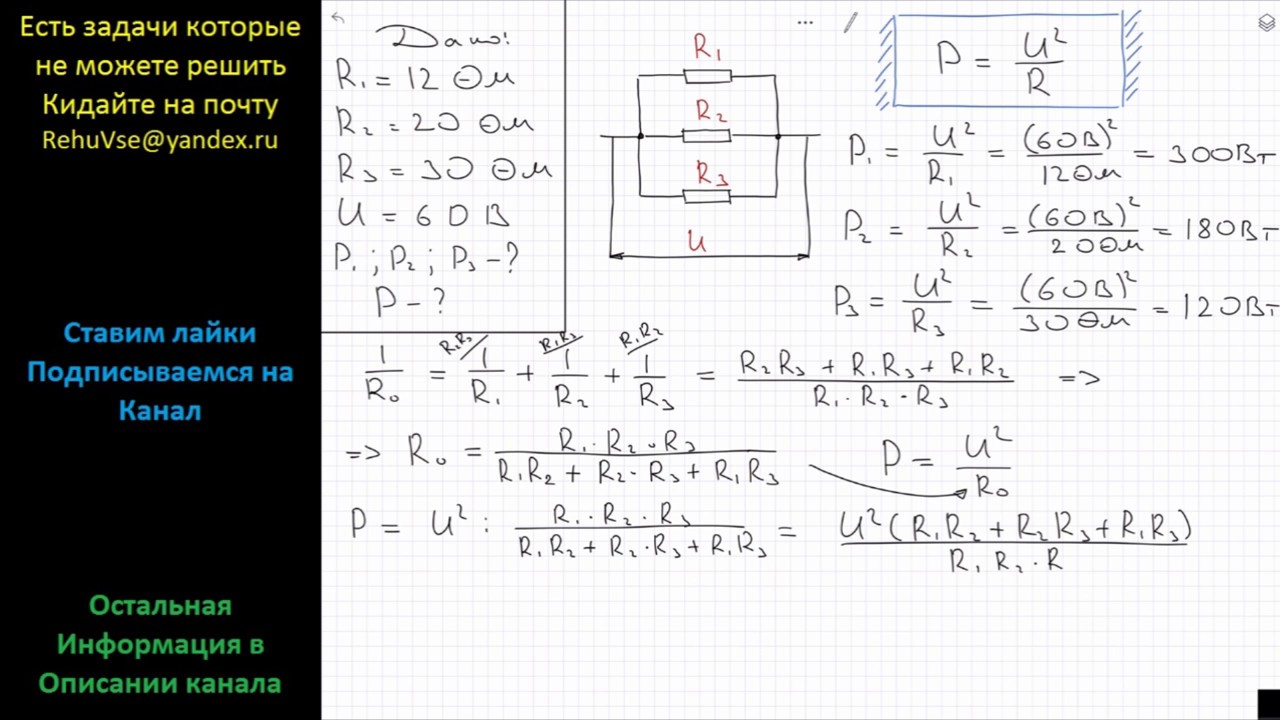 Есть задачи которые
не можете решить
Кидайте на почту
RehuVse@yandex.ru
Ставим лайки
Подписываемся на
Канал
Остальная
Информация в
Описании канала
Дано:
R₁ = 12 Ом
R₂ = 20 Ом
R₃ = 30 Ом
U = 60 В
P₁ ; P₂ ; P₃ - ?
P - ?
R₁
R₂
R₃
U
P = U²/R
P₁ = U²/R₁ = (60В)²/12Ом = 300Вт
P₂ = U²/R₂ = (60В)²/20Ом = 180Вт
P₃ = U²/R₃ = (60В)²/30Ом = 120Вт
R₁R₃/ R₁R₂/
1/R₀ = 1/R₁ + 1/R₂ + 1/R₃ = (R₂R₃ + R₁R₃ + R₁R₂)/(R₁·R₂·R₃) =>
=> R₀ = (R₁·R₂·R₃)/(R₁R₂ + R₂·R₃ + R₁R₃) P = U²/R₀
P = U² : (R₁·R₂·R₃)/(R₁R₂ + R₂·R₃ + R₁R₃) = U²(R₁R₂ + R₂R₃ + R₁R₃)/(R₁R₂·R